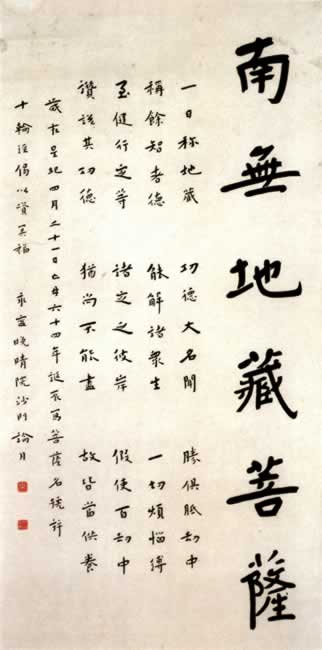 南無地藏菩薩
一日称地藏 功德大名聞 勝俱胝劫中
稱餘智者德 能解諸眾生 一切煩惱縛
至健行定等 諸定之彼岸 假使百劫中
讚說其功德 猶尚不能盡 故皆當供養
歲在星紀四月二十一日亡母六十四年誕辰寫菩薩名號并
十輪經偈以資冥福 永寧晚晴院沙門論月